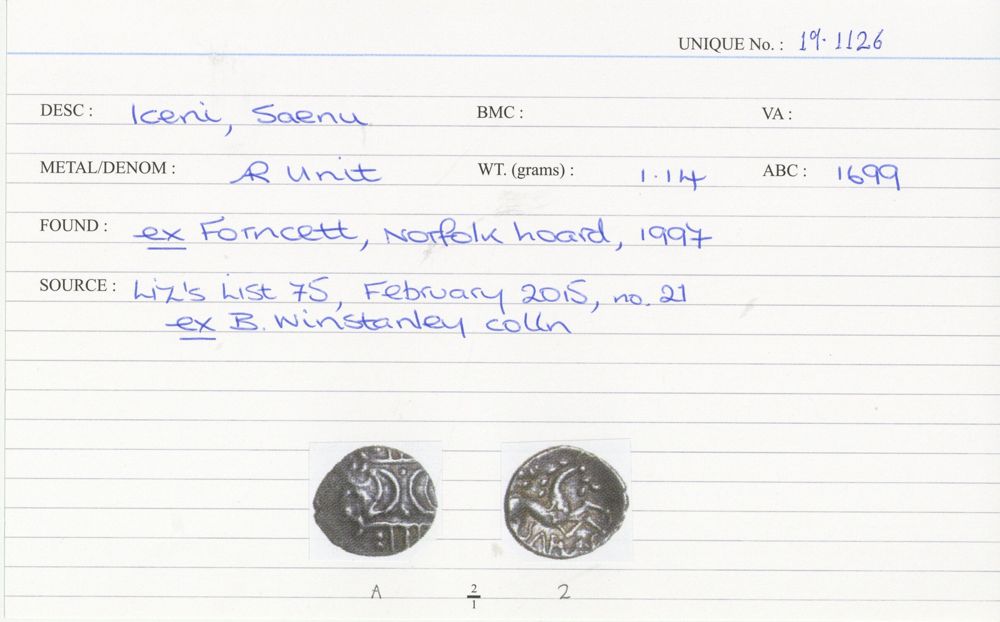 UNIQUE No. : 19.1126
DESC : Iceni, Saenu BMC : VA :
METAL/DENOM : AR Unit WT. (grams) : 1.14 ABC : 1699
FOUND : ex Forncett, Norfolk hoard, 1997
SOURCE : Liz's List 75, February 2015, no. 21
ex B. Winstanley colln
A 2/1 2